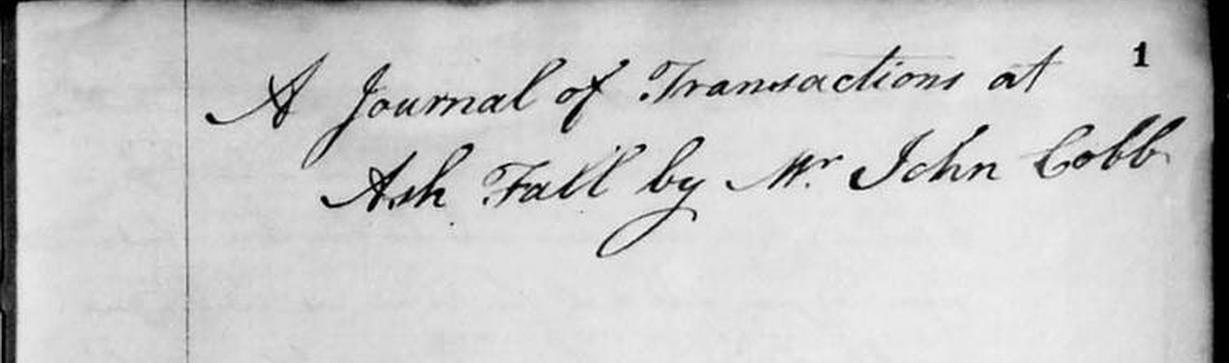 1
A Journal of Transactions at
Ash Fall by Mr. John Cobb